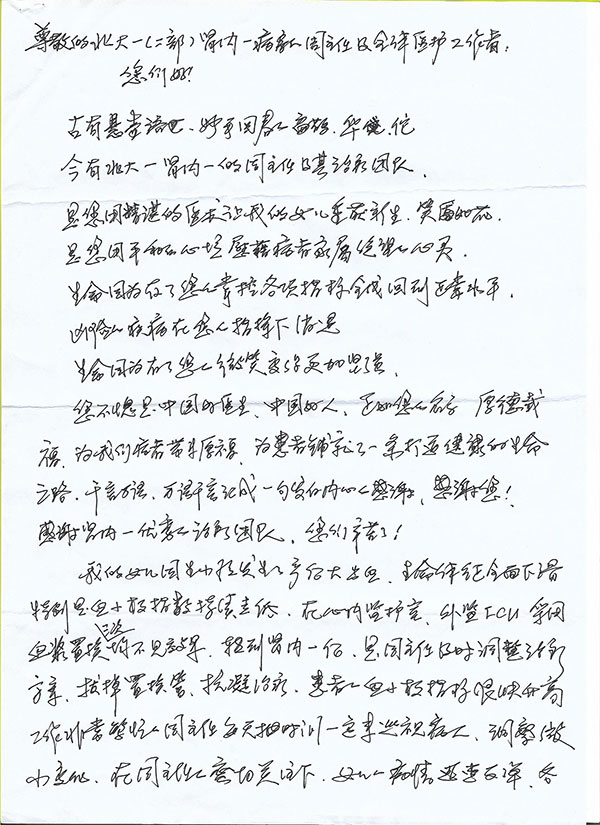 尊敬的北大一(二部)肾内一病房的周主任及全体医护工作者:
您们好!
古有悬壶济世、妙手回春的扁鹊、华佗
今有北大一肾内一的周主任及其治疗团队.
是您用精湛的医术让我的女儿重获新生、笑靥如花.
是您用平和的心境 病者家属绝望的心灵
生命因为有了您的掌控各项指标全线回到正常水平.
凶险的疾病在您的指挥下消退
生命因为有了您的微笑变得更加坚强.
您不愧是中国好医生、中国好人、正如您的名字 厚德载
福、为我们病者带来厚福、为患者铺就了一条打通健康的生命
之路.千言万语、万语千言汇成一句发自内心的感谢,感谢您!
感谢肾内一优秀的治疗团队、您们辛苦了!
我的女儿因生小孩发生了产后大出血、生命体征全面下滑
特别是血小板指数持续走低.在心内监护室、外监ICU采用
血浆置换三次均不见效果.转到肾内一后、是周主任及时调整治疗
方案、拔掉置换管、抗凝治疗.患者的血小板指标很快升高
工作非常繁忙的周主任每天抽时间一定来巡视病人、洞察微
小变化.在周主任的密切关注下.女儿的病情迅速好转、各